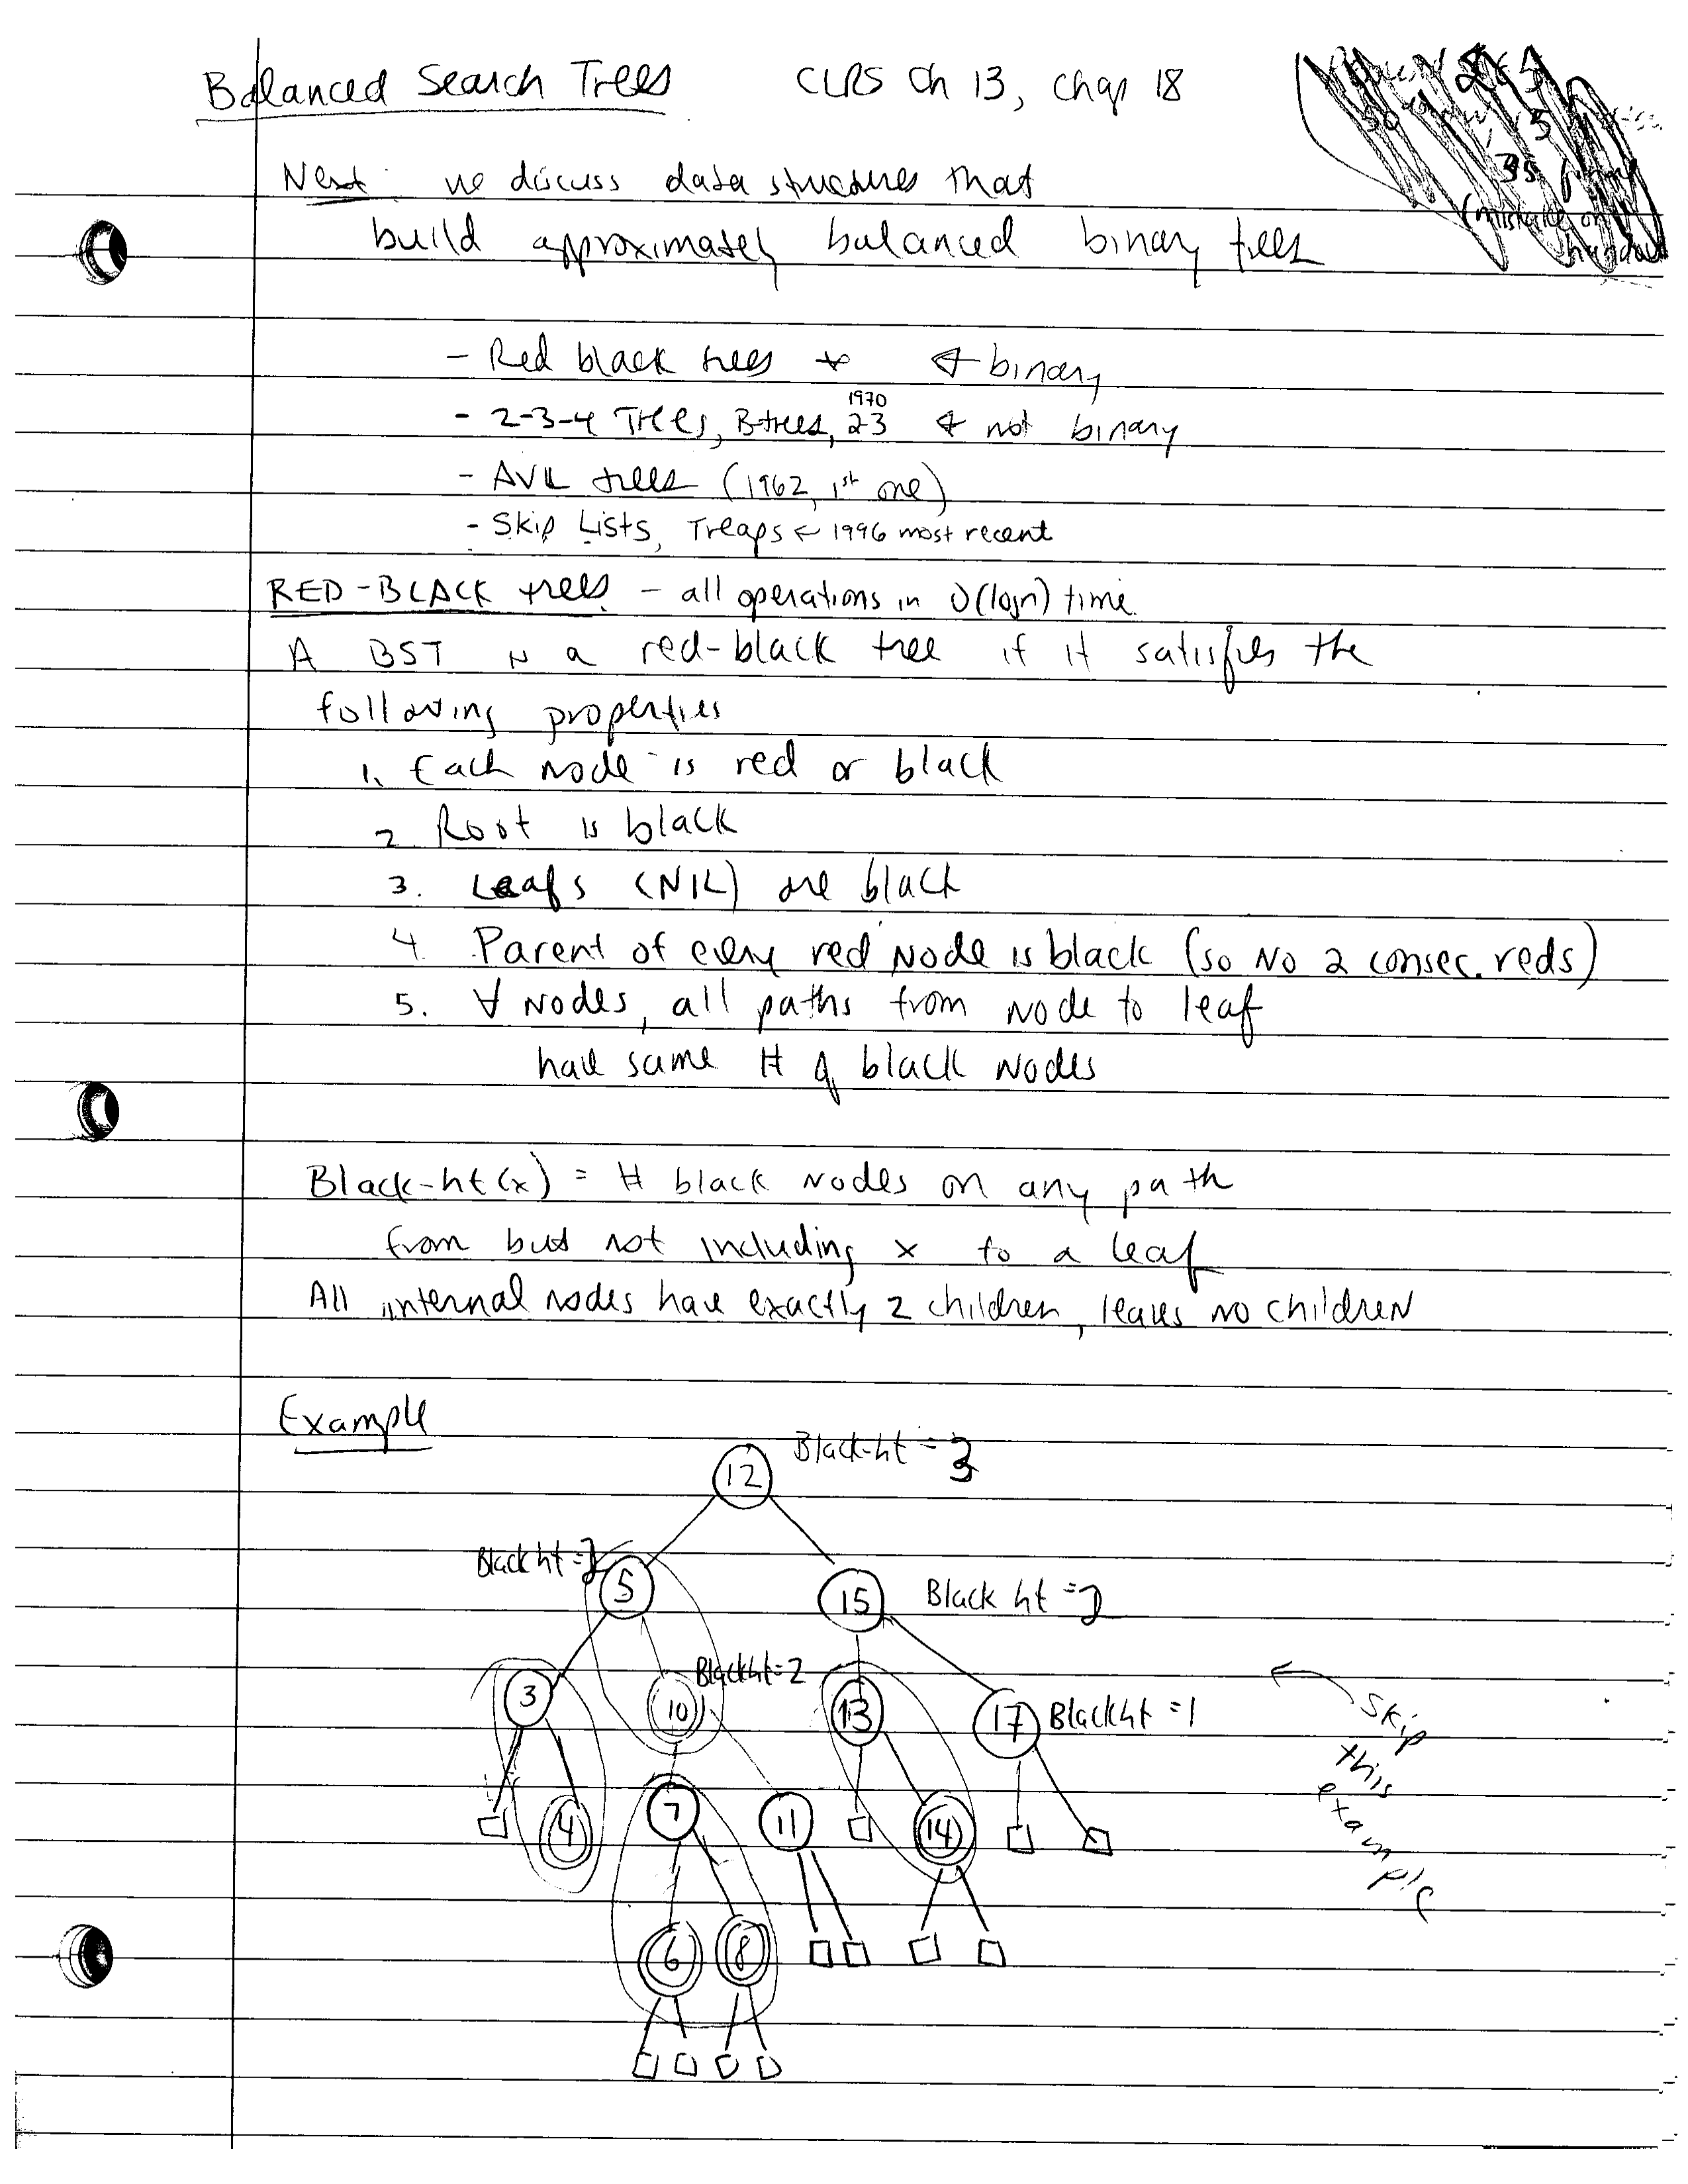 Balanced Search Trees CLRS Ch 13, Chap 18
Next: we discuss data structures that
build approximately balanced binary trees
- Red black trees * ← binary
1970
- 2-3-4 Trees, B-trees, 23 ← not binary
- AVL trees (1962, 1st one)
- Skip Lists, Treaps ← 1996 most recent
RED-BLACK trees - all operations in O(logn) time.
A BST is a red-black tree if it satisfies the
following properties
1. Each node is red or black
2. Root is black
3. Leafs (NIL) are black
4. Parent of every red node is black (so no 2 consec. reds)
5. ∀ nodes, all paths from node to leaf
have same # of black nodes
Black-ht(x) = # black nodes on any path
from but not including x to a leaf
All internal nodes have exactly 2 children, leaves no children
Example
12 Black-ht = 3
Black ht = 5
15 Black ht = 2
3
10 Blackht = 2
13
17 Blackht = 1
Skip
this
example
4
7
11
14
6
8